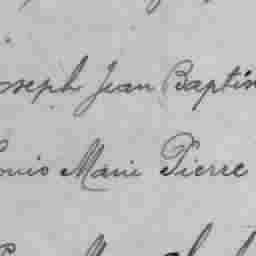 Joseph Jean Baptis
Louis Marie Pierre